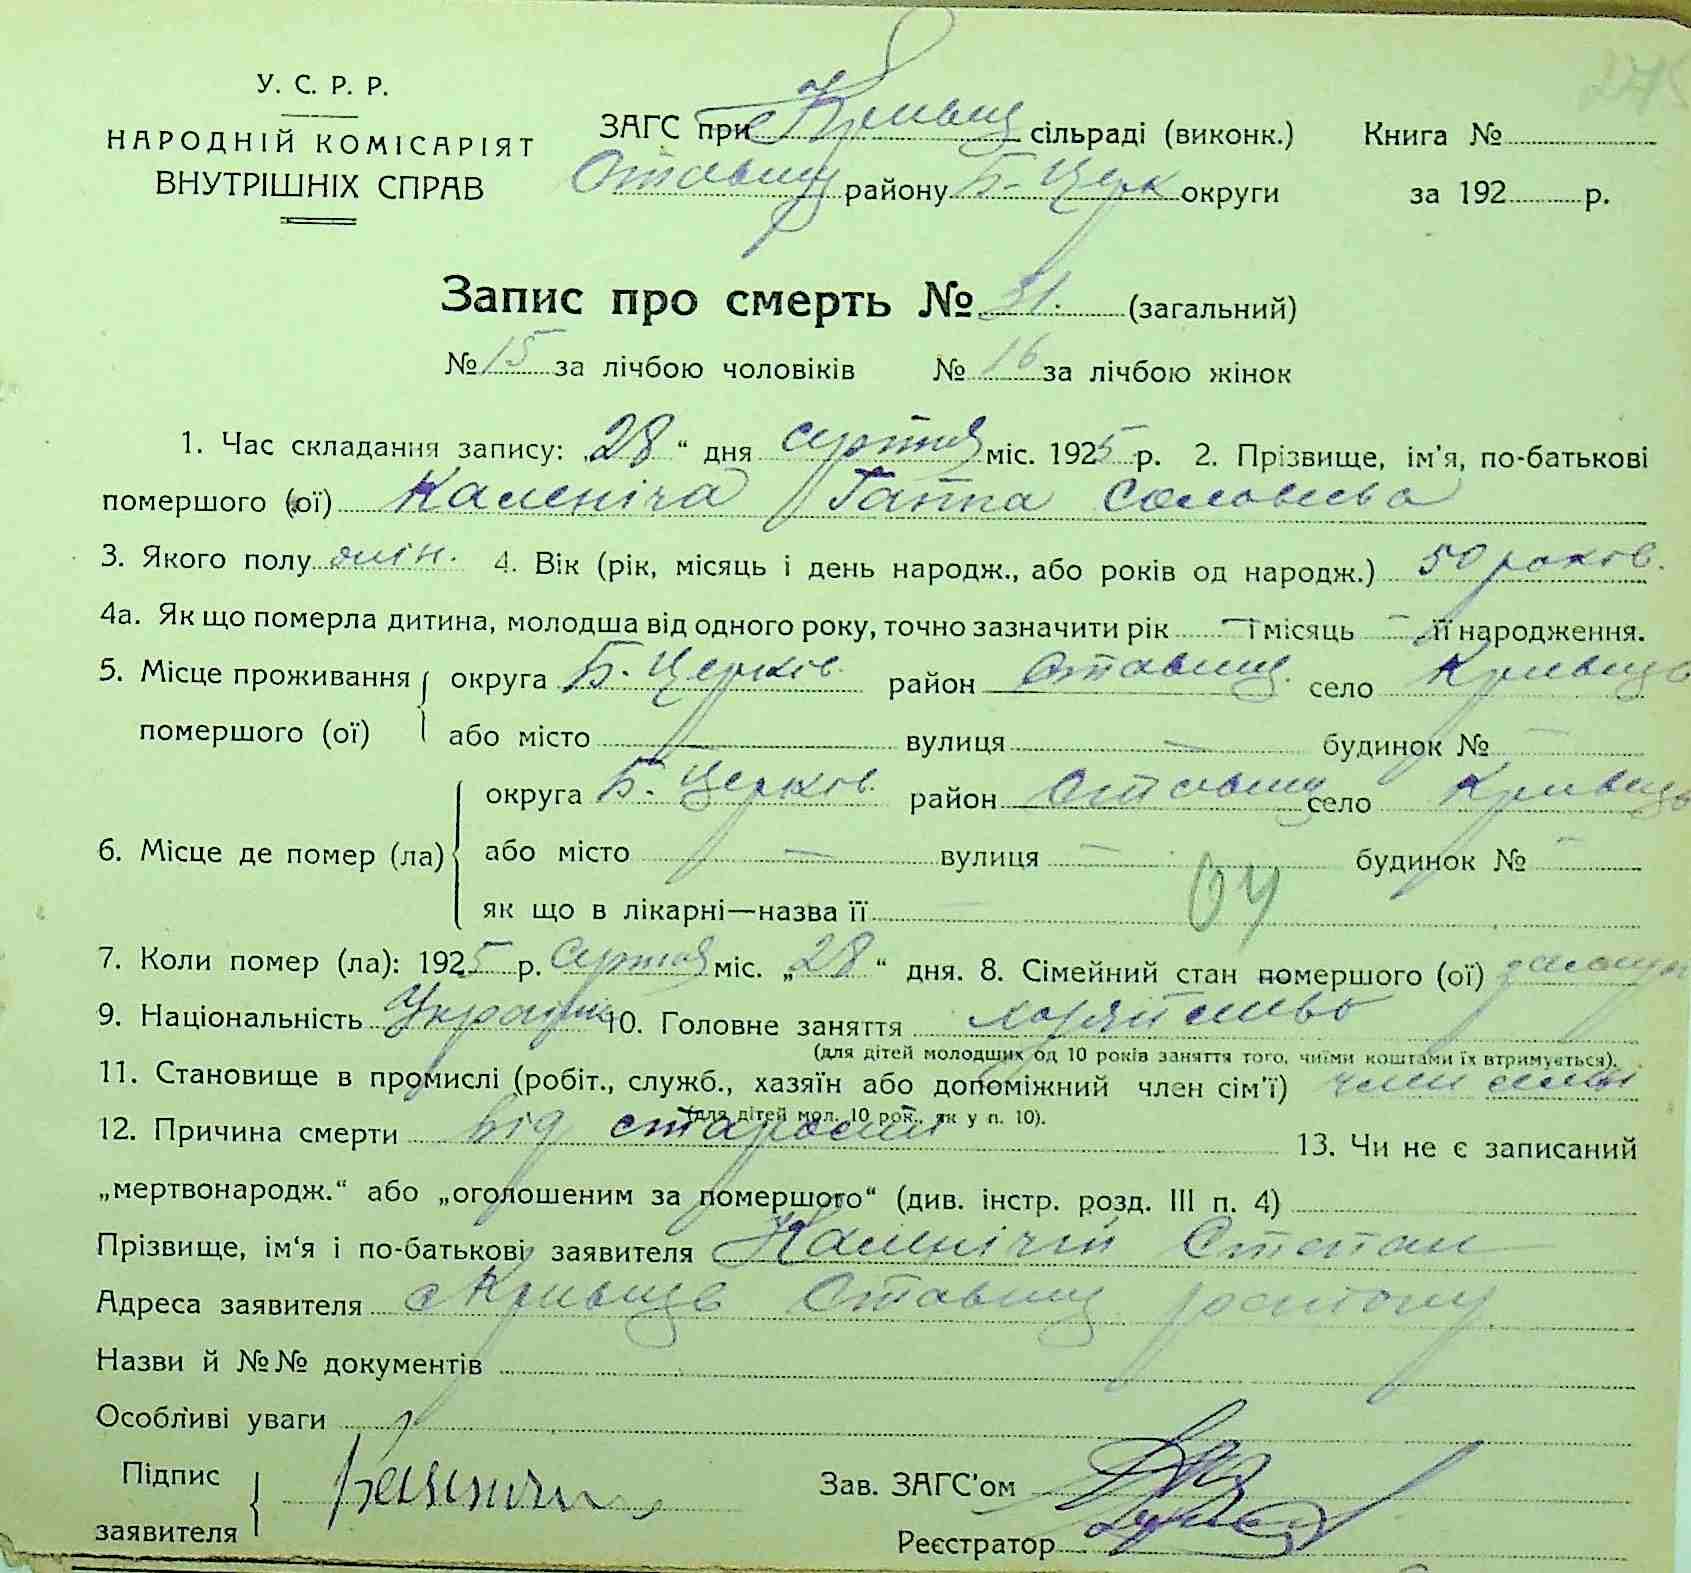 275
У. С. Р. Р.
НАРОДНІЙ КОМІСАРІЯТ
ВНУТРІШНІХ СПРАВ
ЗАГС при Кривец сільраді (виконк.)
Ставищ району Б-Церк округи
Книга №
за 192 р.
Запис про смерть № 31. (загальний)
№ 15 за лічбою чоловіків № 16 за лічбою жінок
1. Час складання запису: „28“ дня серпня міс. 1925 р. 2. Прізвище, ім'я, по-батькові
помершого (ої) Каленіча Ганна
3. Якого полу жін. 4. Вік (рік, місяць і день народж., або років од народж.) 50 років.
4а. Як що померла дитина, молодша від одного року, точно зазначити рік — і місяць — її народження.
5. Місце проживання помершого (ої) округа Б. Церків. район Ставищ. село Кривець
або місто — вулиця — будинок № —
6. Місце де помер (ла) округа Б. Церков. район Ставищ село Кривець
або місто — вулиця — будинок № —
як що в лікарні—назва її —
7. Коли помер (ла): 1925 р. серпня міс. „28“ дня. 8. Сімейний стан помершого (ої)
9. Національність Україн 10. Головне заняття
(для дітей молодших од 10 років заняття того, чиїми коштами їх втримується).
11. Становище в промислі (робіт., служб., хазяїн або допоміжний член сім'ї) член семьи
(для дітей мол. 10 рок., як у п. 10).
12. Причина смерти від старости 13. Чи не є записаний
„мертвонародж.“ або „оголошеним за помершого“ (див. інстр. розд. III п. 4)
Прізвище, ім‘я і по-батькові заявителя Каленічій Степан
Адреса заявителя с Кривець Ставищ району
Назви й №№ документів
Особливі уваги
Підпис заявителя
Зав. ЗАГС'ом
Реєстратор